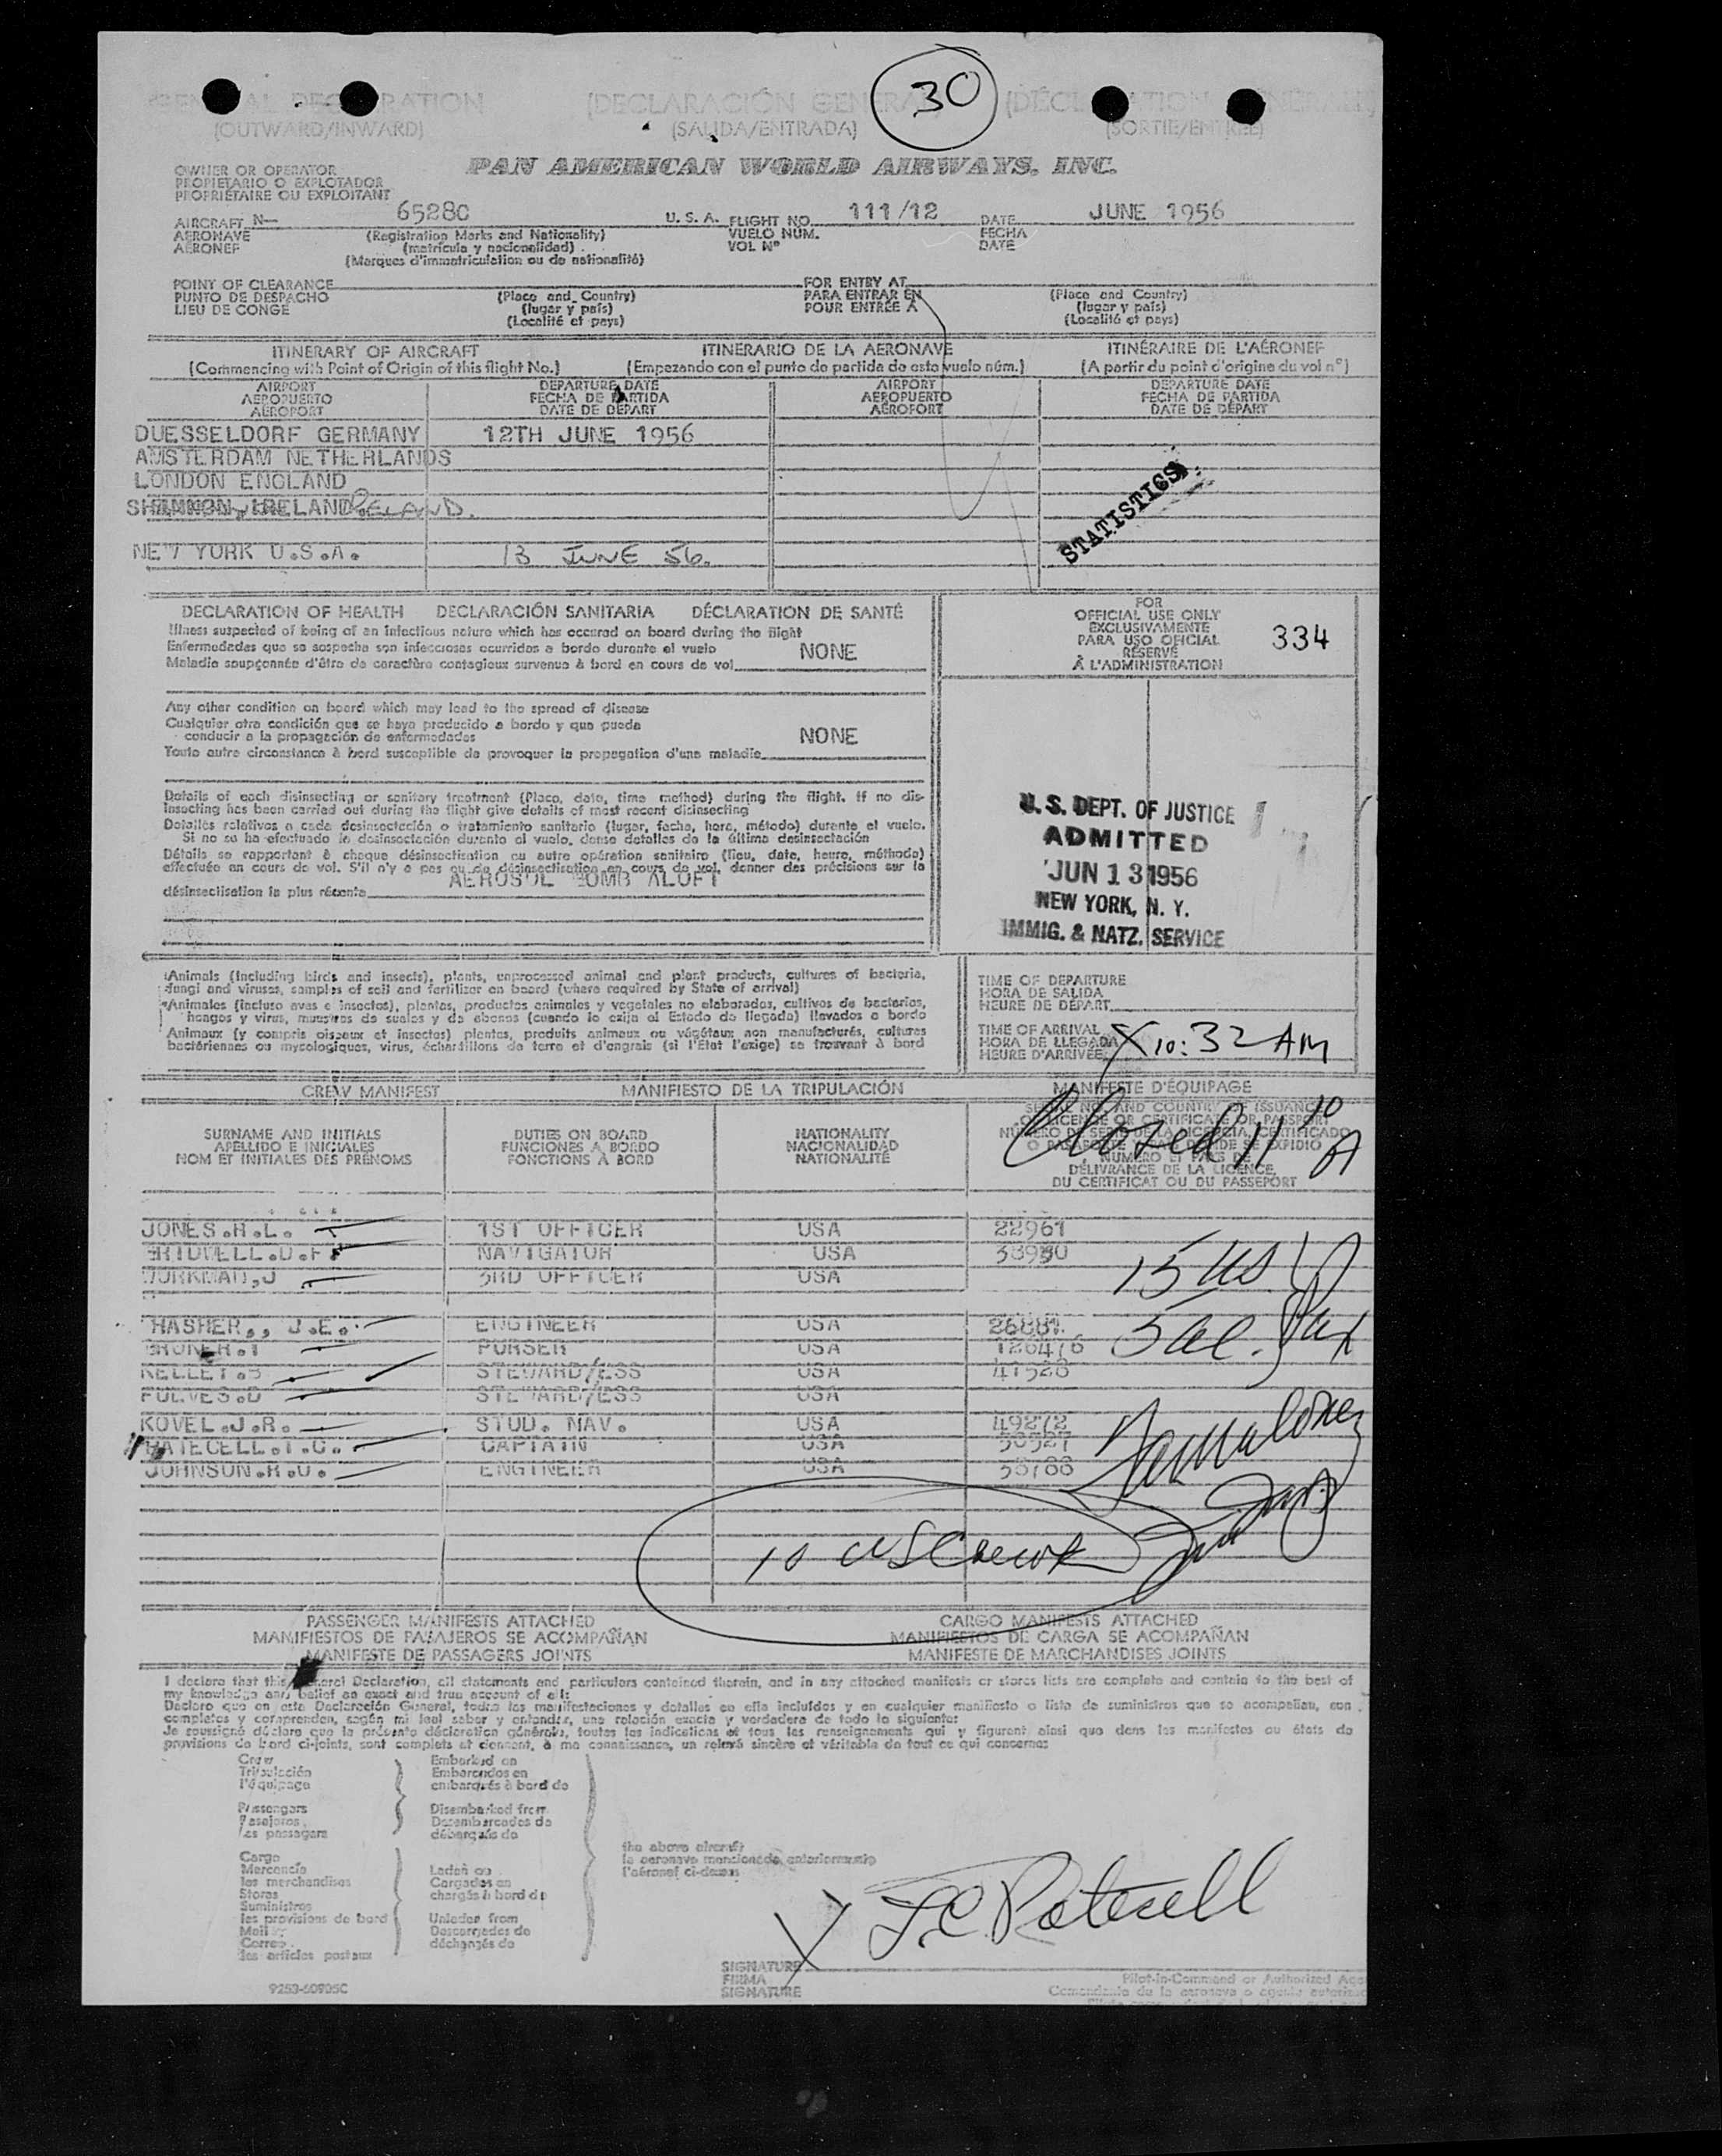 30
GENERAL DECLARATION (DECLARACIÓN GENERAL) (DÉCLARATION GÉNÉRALE)
(OUTWARD/INWARD) (SALIDA/ENTRADA) (SORTIE/ENTRÉE)
OWNER OR OPERATOR PAN AMERICAN WORLD AIRWAYS, INC.
PROPIETARIO O EXPLOTADOR
PROPRIÉTAIRE OU EXPLOITANT
AIRCRAFT N— 6528C U. S. A. FLIGHT NO. 111/12 DATE JUNE 1956
AERONAVE (Registration Marks and Nationality) VUELO NÚM. FECHA
AÉRONEF (matrícula y nacionalidad) VOL Nº DATE
(Marques d'immatriculation ou de nationalité)
POINT OF CLEARANCE FOR ENTRY AT
PUNTO DE DESPACHO (Place and Country) PARA ENTRAR EN (Place and Country)
LIEU DE CONGE (lugar y país) POUR ENTRÉE À (lugar y país)
(Localité et pays) (Localité et pays)
ITINERARY OF AIRCRAFT ITINERARIO DE LA AERONAVE ITINÉRAIRE DE L'AÉRONEF
(Commencing with Point of Origin of this flight No.) (Empezando con el punto de partida de este vuelo núm.) (A partir du point d'origine du vol nº)
AIRPORT DEPARTURE DATE AIRPORT DEPARTURE DATE
AEROPUERTO FECHA DE PARTIDA AEROPUERTO FECHA DE PARTIDA
AÉROPORT DATE DE DÉPART AÉROPORT DATE DE DÉPART
DUESSELDORF GERMANY 12TH JUNE 1956
AMSTERDAM NETHERLANDS
LONDON ENGLAND
SHANNON, IRELAND
NEW YORK U.S.A. 13 JUNE 56.
STATISTICS
DECLARATION OF HEALTH DECLARACIÓN SANITARIA DÉCLARATION DE SANTÉ
Illness suspected of being of an infectious nature which has occured on board during the flight
Enfermedades que se sospecha son infecciosas ocurridas a bordo durante el vuelo NONE
Maladie soupçonnée d'être de caractère contagieux survenue à bord en cours de vol
FOR
OFFICIAL USE ONLY
EXCLUSIVAMENTE
PARA USO OFICIAL 334
RÉSERVÉ
À L'ADMINISTRATION
Any other condition on board which may lead to the spread of disease
Cualquier otra condición que se haya producido a bordo y que pueda
conducir a la propagación de enfermedades NONE
Toute autre circonstance à bord susceptible de provoquer la propagation d'une maladie
Details of each disinsecting or sanitary treatment (Place, date, time method) during the flight. If no dis-
insecting has been carried out during the flight give details of most recent disinsecting
Detalles relativos a cada desinsectación o tratamiento sanitario (lugar, fecha, hora, método) durante el vuelo.
Si no se ha efectuado la desinsectación durante el vuelo, dense detalles de la última desinsectación
Détails se rapportant à chaque désinsectisation ou autre opération sanitaire (lieu, date, heure, méthode)
effectuée en cours de vol. S'il n'y a pas eu de désinsectisation en cours de vol, donner des précisions sur la
désinsectisation la plus récente AEROSOL BOMB ALOFT
U. S. DEPT. OF JUSTICE
ADMITTED
JUN 13 1956
NEW YORK, N. Y.
IMMIG. & NATZ. SERVICE
Animals (including birds and insects), plants, unprocessed animal and plant products, cultures of bacteria,
fungi and viruses, samples of soil and fertilizer on board (where required by State of arrival)
Animales (incluso aves e insectos), plantas, productos animales y vegetales no elaborados, cultivos de bacterias,
hongos y virus, muestras de suelos y de abonos (cuando lo exija el Estado de llegada) llevados a bordo
Animaux (y compris oiseaux et insectes) plantes, produits animaux ou végétaux non manufacturés, cultures
bactériennes ou mycologiques, virus, échantillons de terre et d'engrais (si l'État l'exige) se trouvant à bord
TIME OF DEPARTURE
HORA DE SALIDA
HEURE DE DÉPART
TIME OF ARRIVAL
HORA DE LLEGADA X 10:32 AM
HEURE D'ARRIVÉE
CREW MANIFEST MANIFIESTO DE LA TRIPULACIÓN MANIFESTE D'ÉQUIPAGE
SURNAME AND INITIALS DUTIES ON BOARD NATIONALITY
APELLIDO E INICIALES FUNCIONES A BORDO NACIONALIDAD
NOM ET INITIALES DES PRÉNOMS FONCTIONS À BORD NATIONALITÉ
SERIAL NO. AND COUNTRY OF ISSUANCE
OF LICENSE OR CERTIFICATE OR PASSPORT
NÚMERO DE SERIE DE LA LICENCIA, CERTIFICADO
O PASAPORTE Y PAÍS DONDE SE EXPIDIÓ
NUMÉRO ET PAYS DE
DÉLIVRANCE DE LA LICENCE
DU CERTIFICAT OU DU PASSEPORT
Closed 11 10 A
JONES.H.L. 1ST OFFICER USA 22961
NAVIGATOR USA
WORKMAN,J 3RD OFFICER USA
15 US
THASHER,, J.E. ENGINEER USA
5 al. Pax
PURSER USA 126476
KELLEY.S STEWARD/ESS USA 41528
STEWARD/ESS USA
KOVEL.J.R. STUD. NAV. USA 49272
CAPTAIN USA
JOHNSON.R.O. ENGINEER USA
10 US Crew
PASSENGER MANIFESTS ATTACHED CARGO MANIFESTS ATTACHED
MANIFIESTOS DE PASAJEROS SE ACOMPAÑAN MANIFIESTOS DE CARGA SE ACOMPAÑAN
MANIFESTE DE PASSAGERS JOINTS MANIFESTE DE MARCHANDISES JOINTS
I declare that this General Declaration, all statements and particulars contained therein, and in any attached manifests or stores lists are complete and contain to the best of
my knowledge and belief an exact and true account of all:
Declaro que en esta Declaración General, todas las manifestaciones y detalles en ella incluídos y en cualquier manifiesto o lista de suministros que se acompañan, son
completos y comprenden, según mi leal saber y entender, una relación exacta y verdadera de todo lo siguiente:
Je soussigné déclare que la présente déclaration générale, toutes les indications et tous les renseignements qui y figurent ainsi que dans les manifestes ou états de
provisions de bord ci-joints, sont complets et donnent, à ma connaissance, un relevé sincère et véritable de tout ce qui concerne:
Crew Embarked on
Tripulación Embarcados en
l'équipage embarqués à bord de
Passengers Disembarked from
Pasajeros Desembarcados de
les passagers débarqués de
the above aircraft
la aeronave mencionada anteriormente
l'aéronef ci-dessus
Cargo
Mercancía Laden on
les marchandises Cargados en
Stores chargés à bord de
Suministros
les provisions de bord Unladen from
Mail Descargados de
Correo déchargés de
les articles postaux
X
SIGNATURE
FIRMA Pilot-in-Command or Authorized
SIGNATURE Comandante de la aeronave o agente
9253-60905C